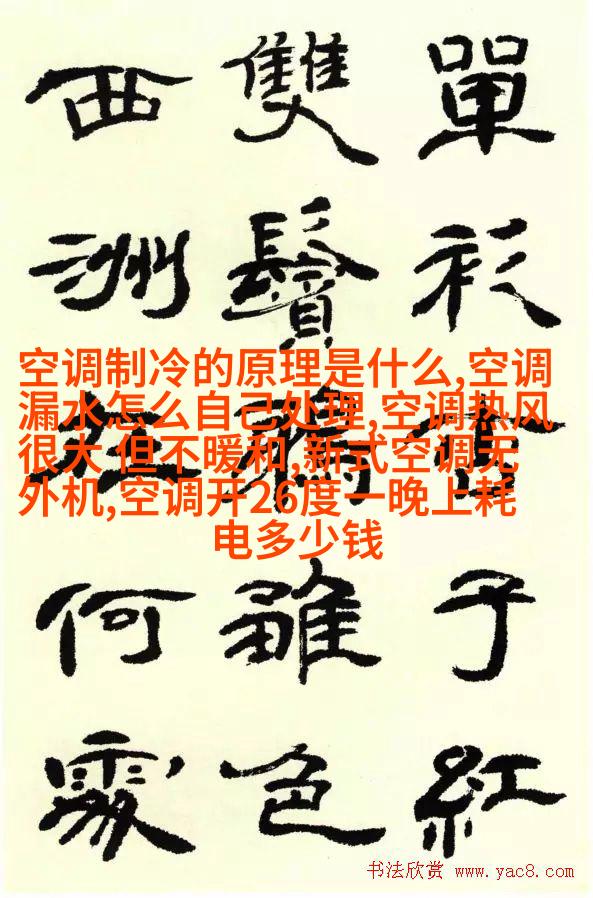 單衫子紅
雙鬢雛色
西洲何處
空调制冷的原理是什么,空调
漏水怎么自己处理,空调热风
很大 但不暖和,新式空调无
外机,空调开26度一晚上耗
电多少钱
书法欣赏 www.yac8.com